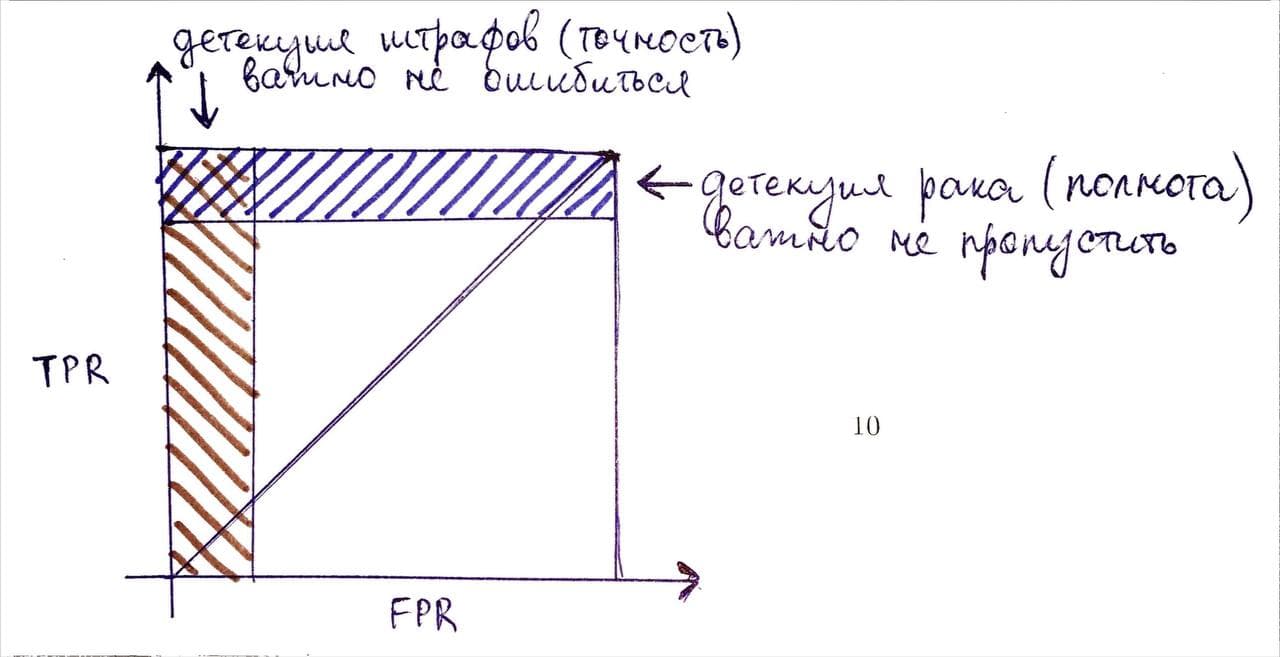 детекция штрафов (точность)
важно не ошибиться
детекция рака (полнота)
важно не пропустить
TPR
10
FPR